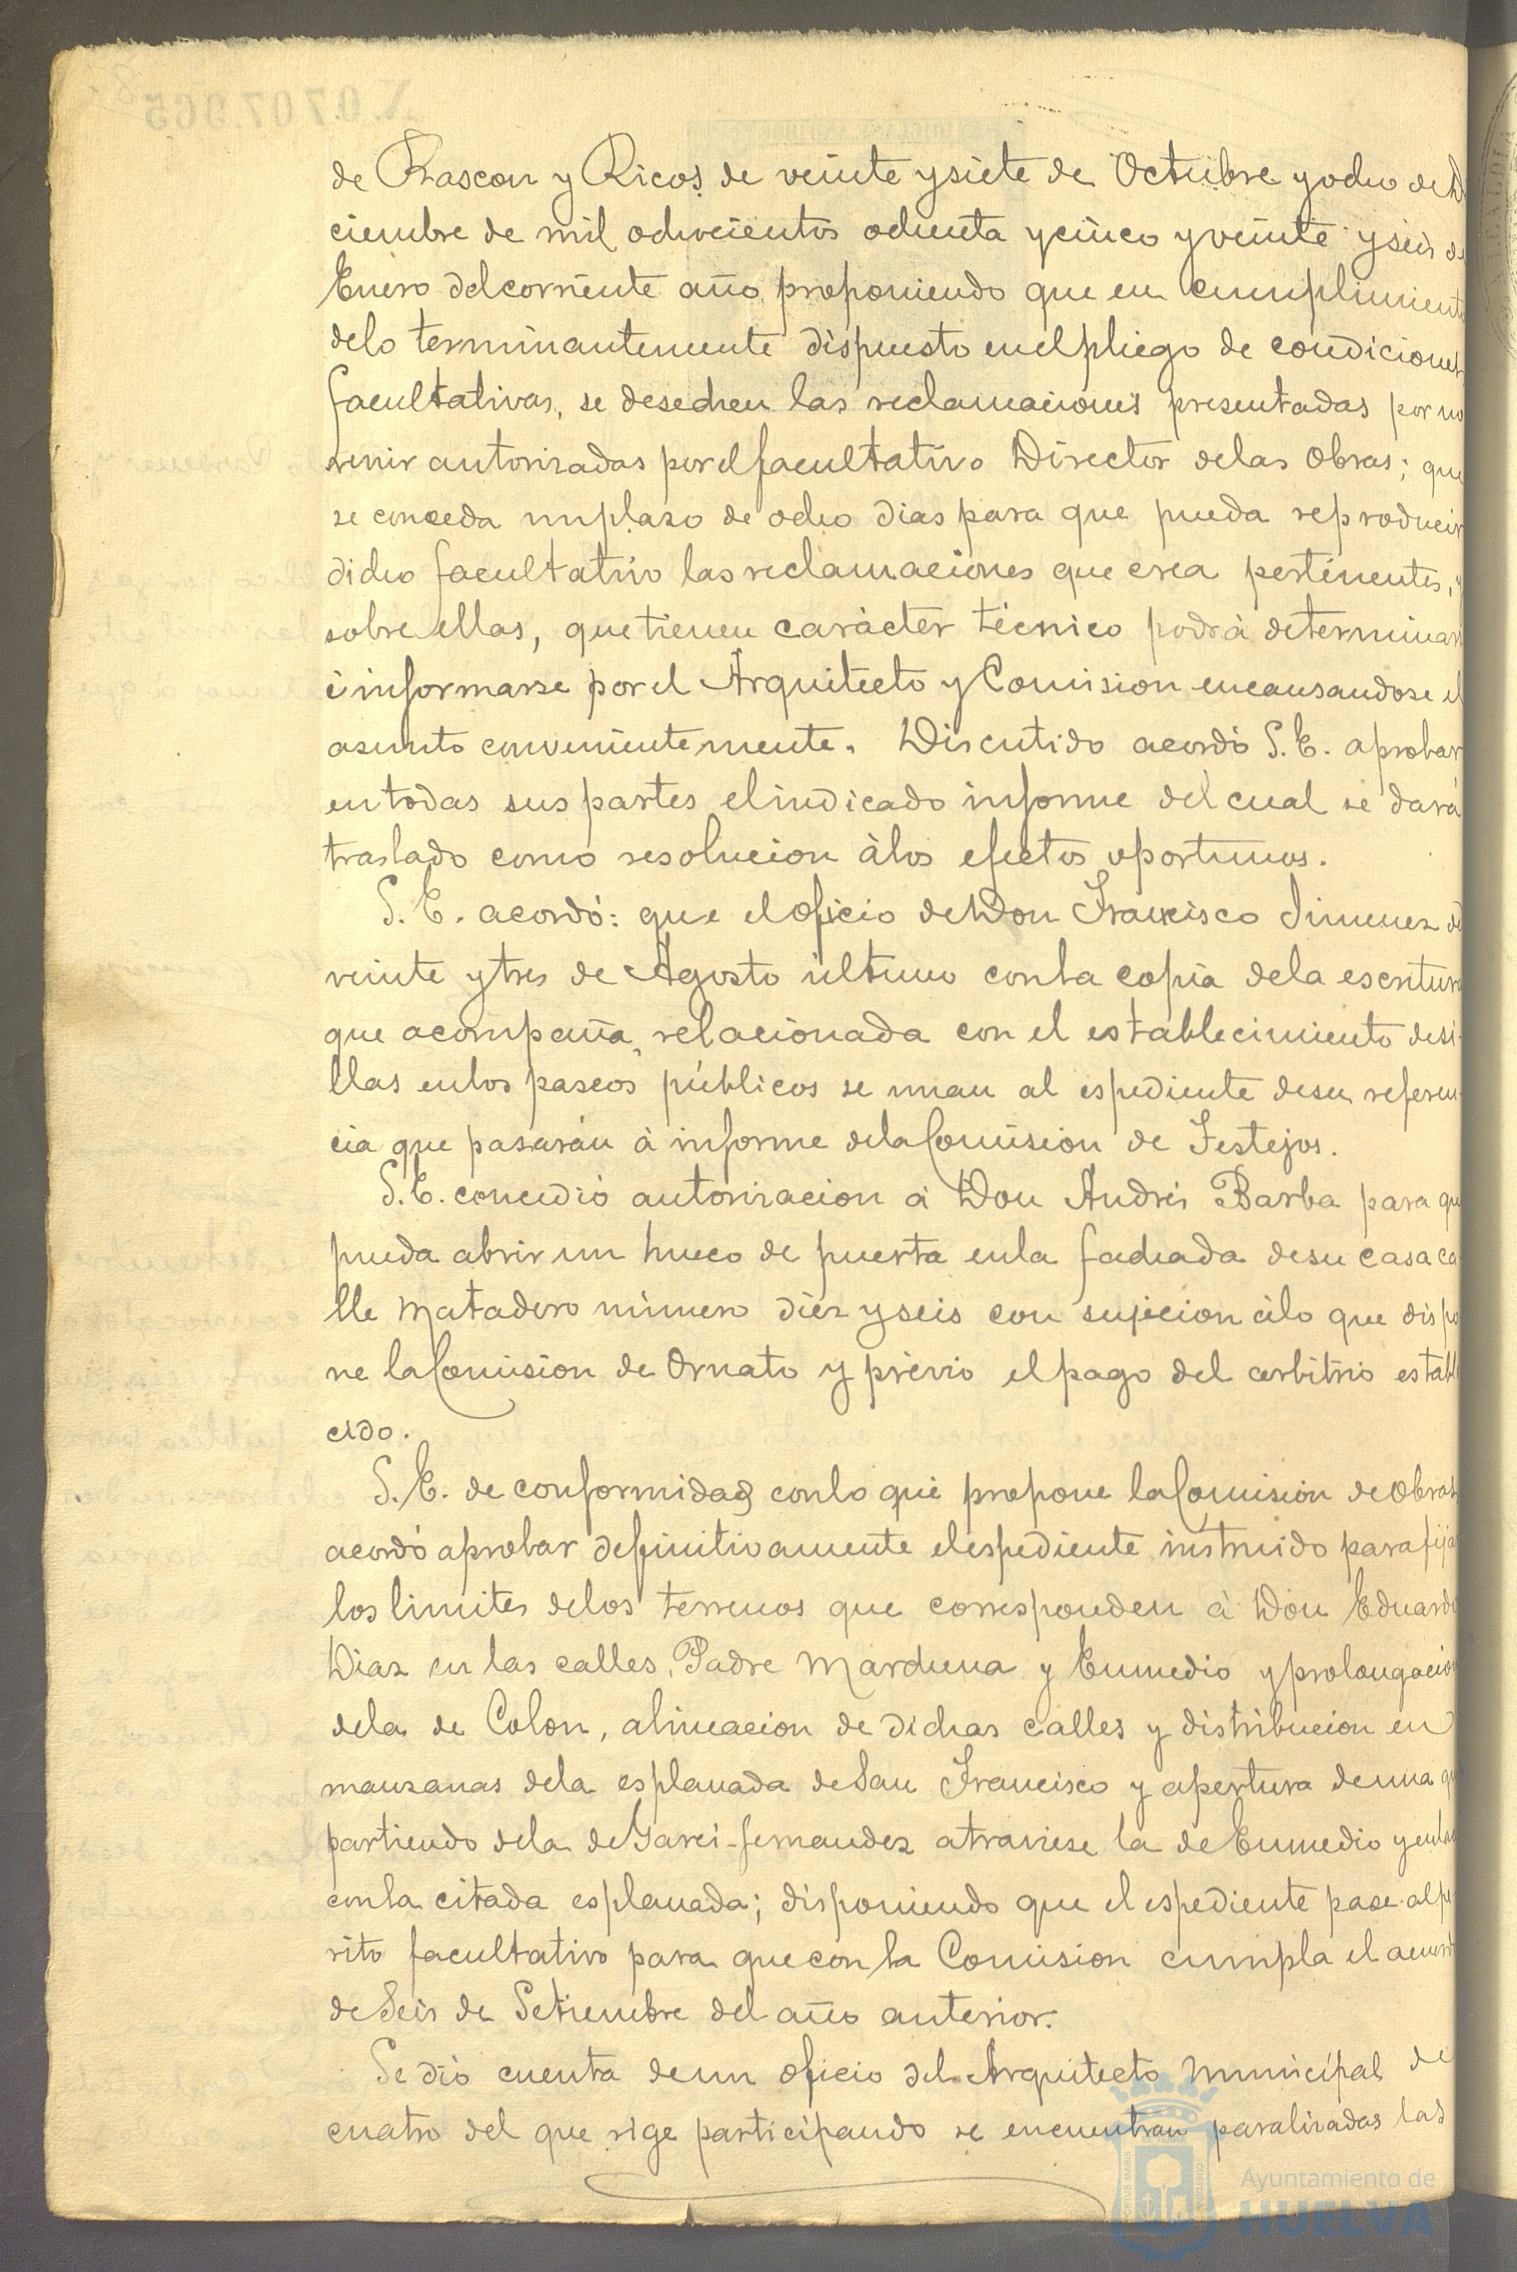 de Rascon y Ricos de veinte y siete de Octubre y ocho de Di
ciembre de mil ochocientos ochenta y cinco y veinte y seis de
Enero del corriente año proponiendo que en cumplimiento
de lo terminantemente dispuesto en el pliego de condiciones
facultativas, se desechen las reclamaciones presentadas por no
venir autorizadas por el facultativo Director de las Obras; que
se conceda un plazo de ocho dias para que pueda reproducir
dicho facultativo las reclamaciones que crea pertinentes, y
sobre ellas, que tienen carácter técnico podrá determinar
é informarse por el Arquitecto y Comision encausandose el
asunto convenientemente. Discutido acordó S.E. aprobar
en todas sus partes el indicado informe del cual se dará
traslado como resolucion á los efectos oportunos.
S.E. acordó: que el oficio de Don Francisco Jimenez de
veinte y tres de Agosto último con la copia de la escritura
que acompaña, relacionada con el establecimiento de si-
llas en los paseos públicos se unan al espediente de su referen-
cia que pasarán á informe de la Comision de Festejos.
S.E. concedió autorizacion á Don Andrés Barba para que
pueda abrir un hueco de puerta en la fachada de su casa ca
lle Matadero número diez y seis con sujecion á lo que dispo
ne la Comision de Ornato y prévio el pago del arbitrio estable
cido.
S.E. de conformidad con lo que propone la Comision de Obras
acordó aprobar definitivamente el espediente instruido para fijar
los limites de los terrenos que corresponden á Don Eduardo
Diaz en las calles, Padre Marchena y Enmedio y prolongacion
de la de Colon, alineacion de dichas calles y distribucion en
manzanas de la esplanada de San Francisco y apertura de una que
partiendo de la de Garci-fernandez atraviese la de Enmedio y enlace
con la citada esplanada; disponiendo que el espediente pase al pe
rito facultativo para que con la Comision cumpla el acuerdo
de Seis de Setiembre del año anterior.
Se dió cuenta de un oficio del Arquitecto Municipal de
cuatro del que rige participando se encuentran paralizadas las
Ayuntamiento de
HUELVA